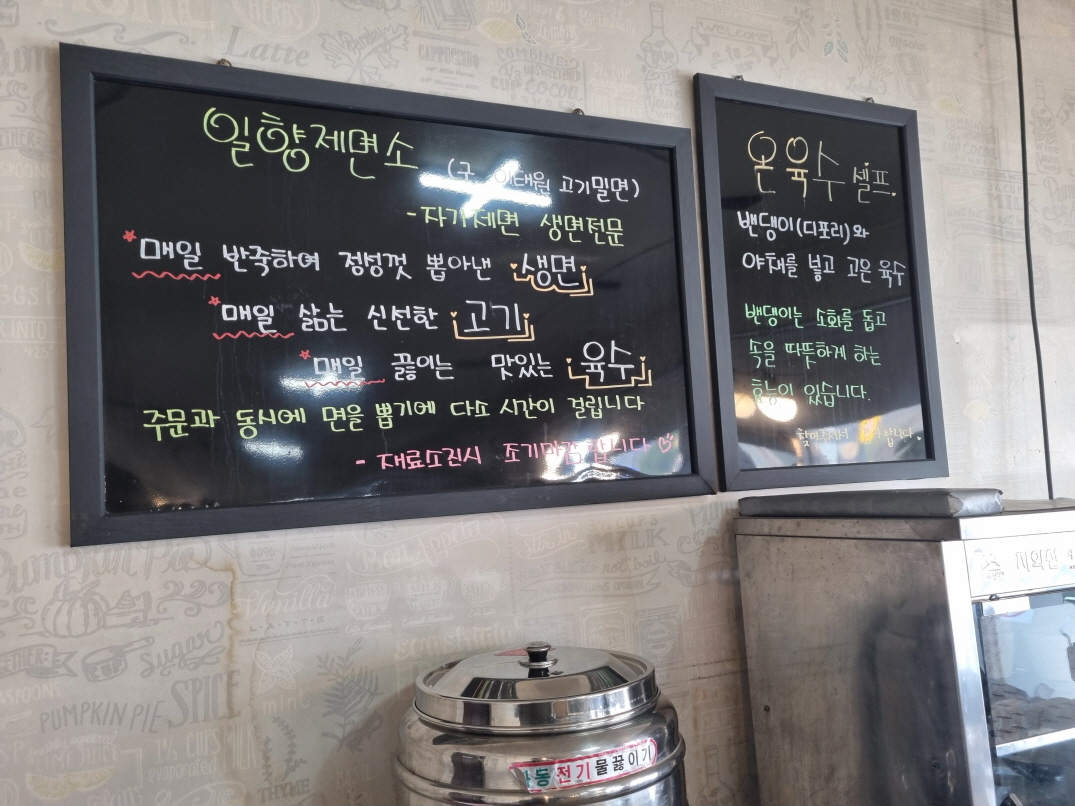 일향제면소 (구 이태원 고기밀면)
-자가제면 생면전문
*매일 반죽하여 정성껏 뽑아낸 생면
*매일 삶는 신선한 고기
*매일 끓이는 맛있는 육수
주문과 동시에 면을 뽑기에 다소 시간이 걸립니다
- 재료소진시 조기마감 합니다♡
온육수 셀프
밴댕이(디포리)와
야채를 넣고 고은 육수
밴댕이는 소화를 돕고
속을 따뜻하게 하는
효능이 있습니다.
찾아주셔서 감사합니다.
자동전기물끓이기
지외선
Latte
HERBS
CAPPUCCINO
COMBINED
CUP COCOA
WELCOME
MILK
Pumpkin Pie
Vanilla
Sugar
SPICE
PUMPKIN PIE
THYME